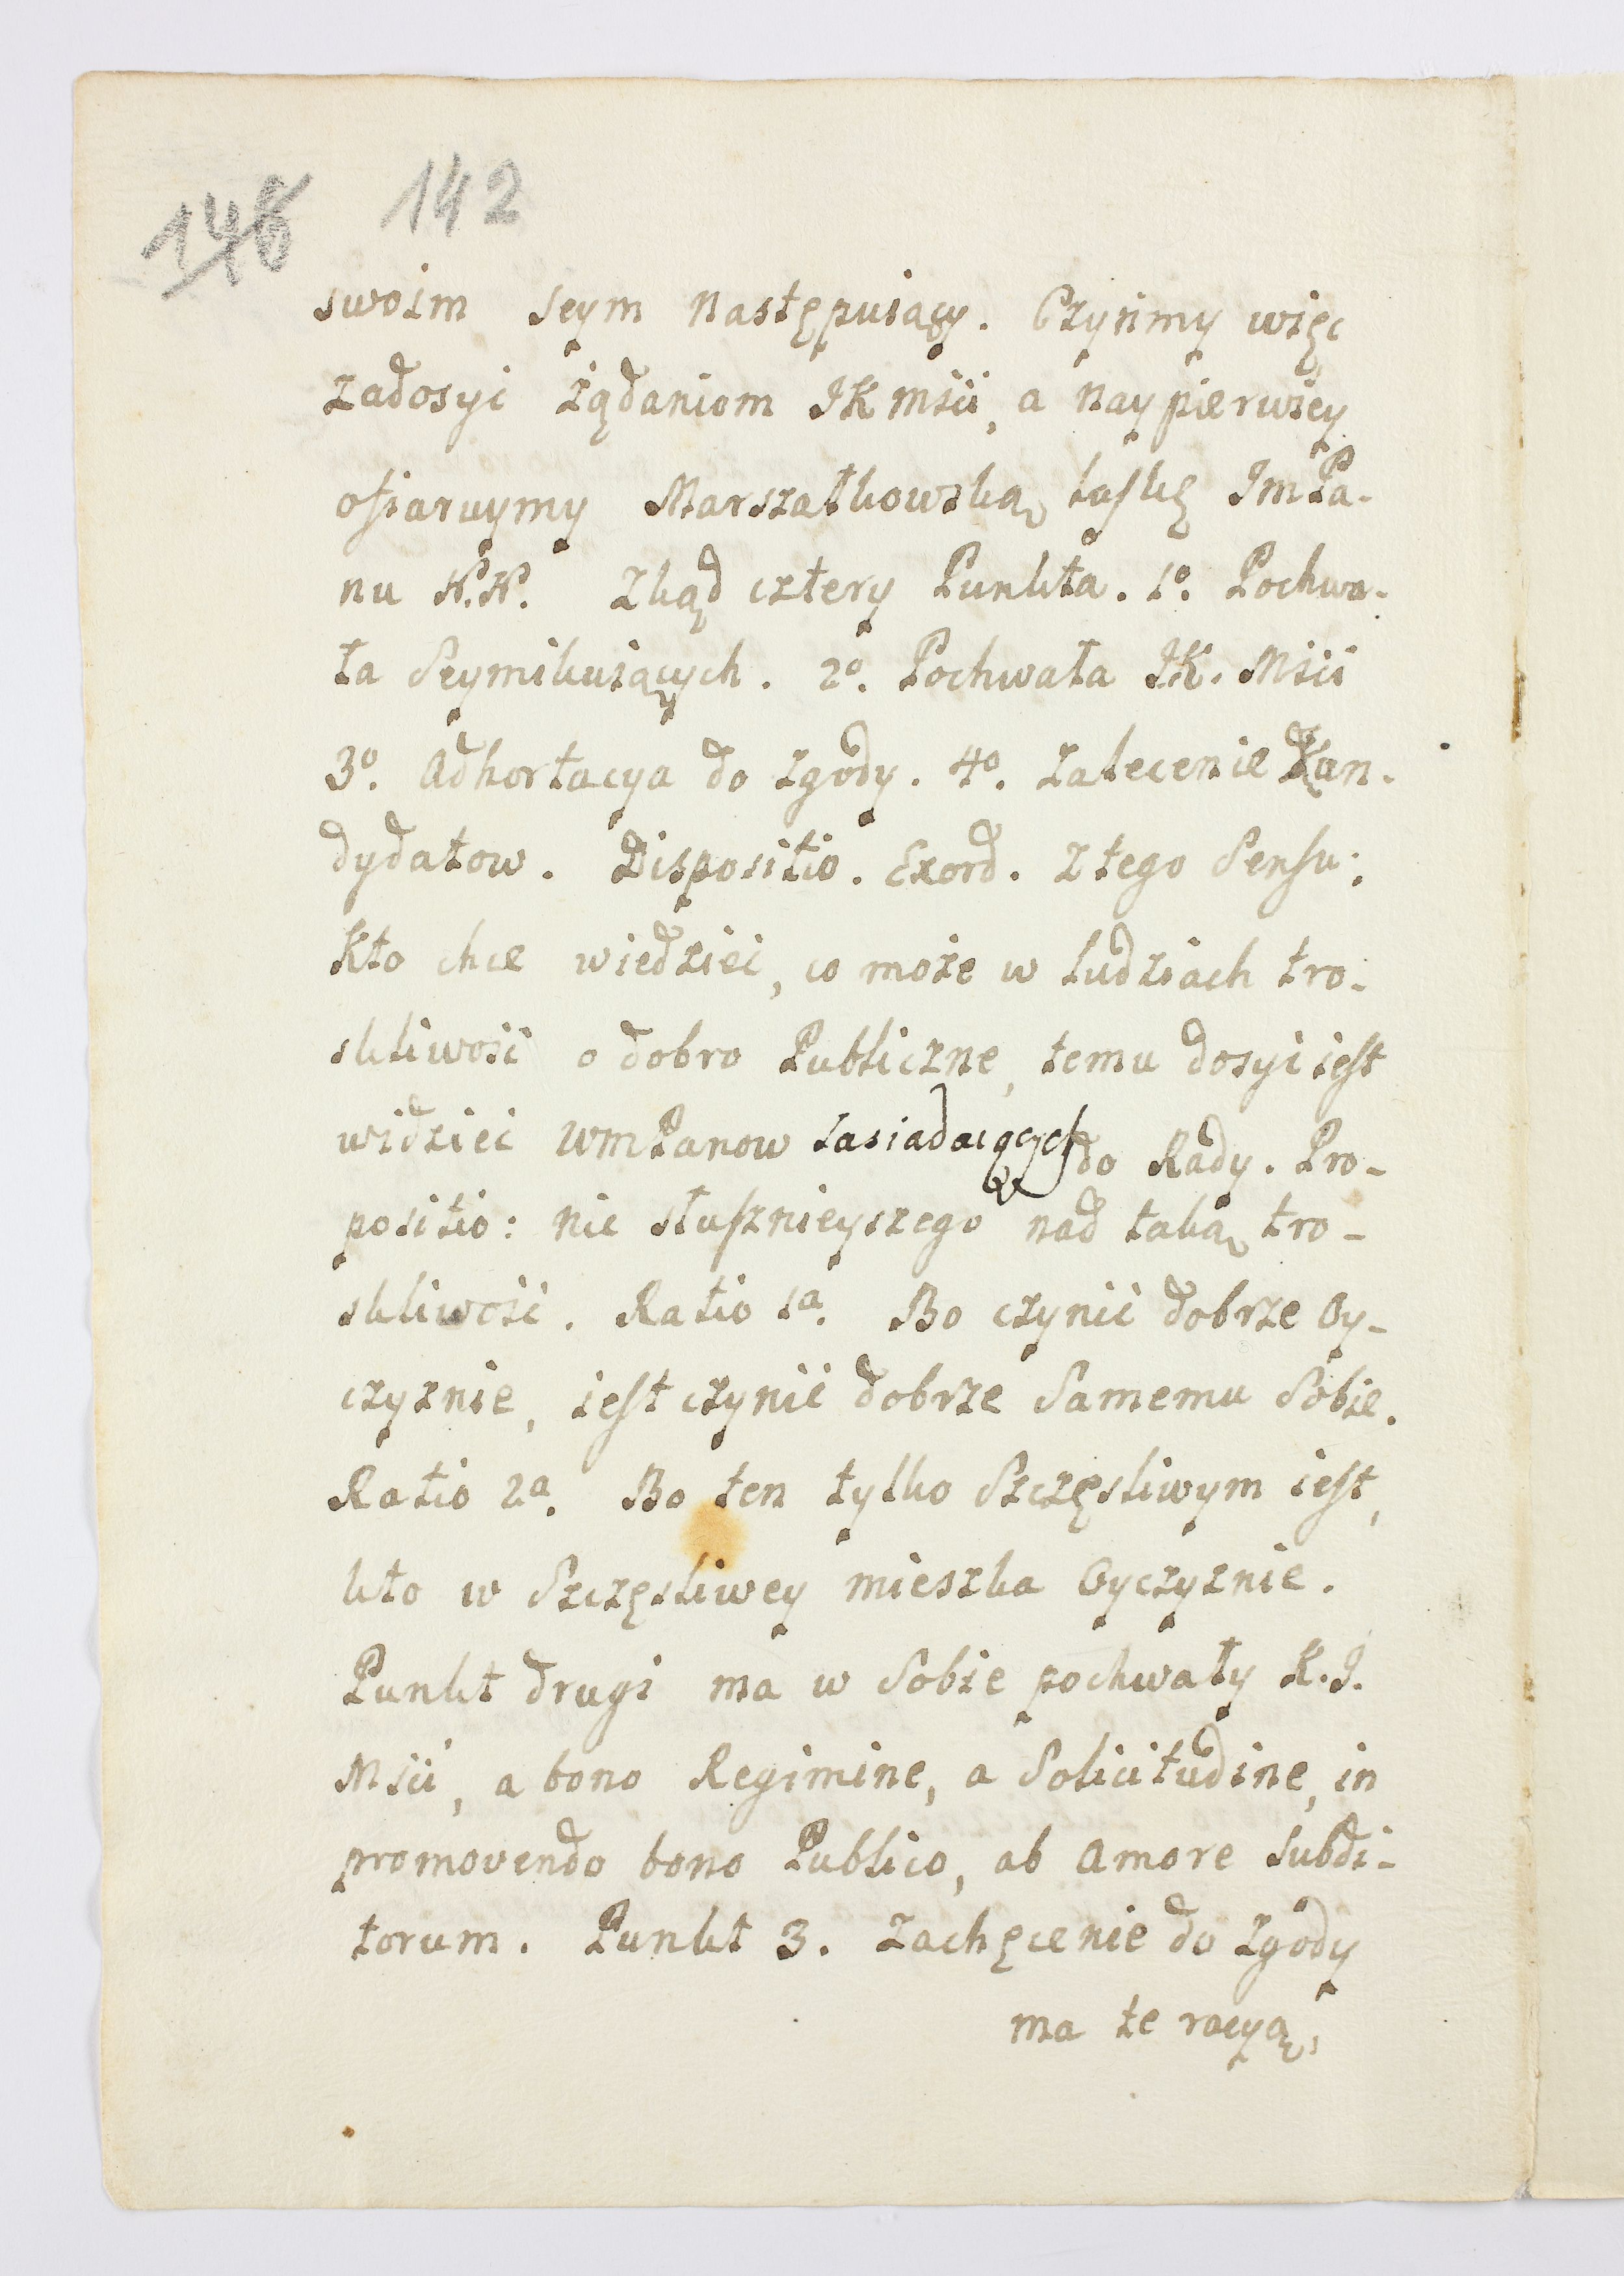 148 142
swoim seym następuiący. Czyńmy więc
zadosyć żądaniom JKmści, a naypierwiey
ofiaruymy Marszałkowską laskę JmPa-
nu N.N. Zkąd cztery Punkta. 1º. Pochwa-
ła Seymikuiących. 2º. Pochwała JK. Mści
3º. Adhortacya do zgody. 4º. zalecenie Kan-
dydatow. Dispositio. Exord. z tego Sensu:
Kto chce wiedzieć, co może w ludziach tro-
skliwość o dobro Publiczne, temu dosyć iest
widzieć WmPanow zasiadaiących do Rady. Pro-
positio: nic słusznieyszego nad taką tro-
skliwość. Ratio 1ª. Bo czynić dobrze Oy-
czyznie, iest czynić dobrze Samemu Sobie.
Ratio 2ª. Bo ten tylko Szczęsliwym iest,
kto w Szczęsliwey mieszka Oyczyznie.
Punkt drugi ma w Sobie pochwały K.J.
Mści, a bono Regimine, a Solicitudine, in
promovendo bono Publico, ab amore subdi-
torum. Punkt 3. zachęcenie do zgody
ma te racyą,